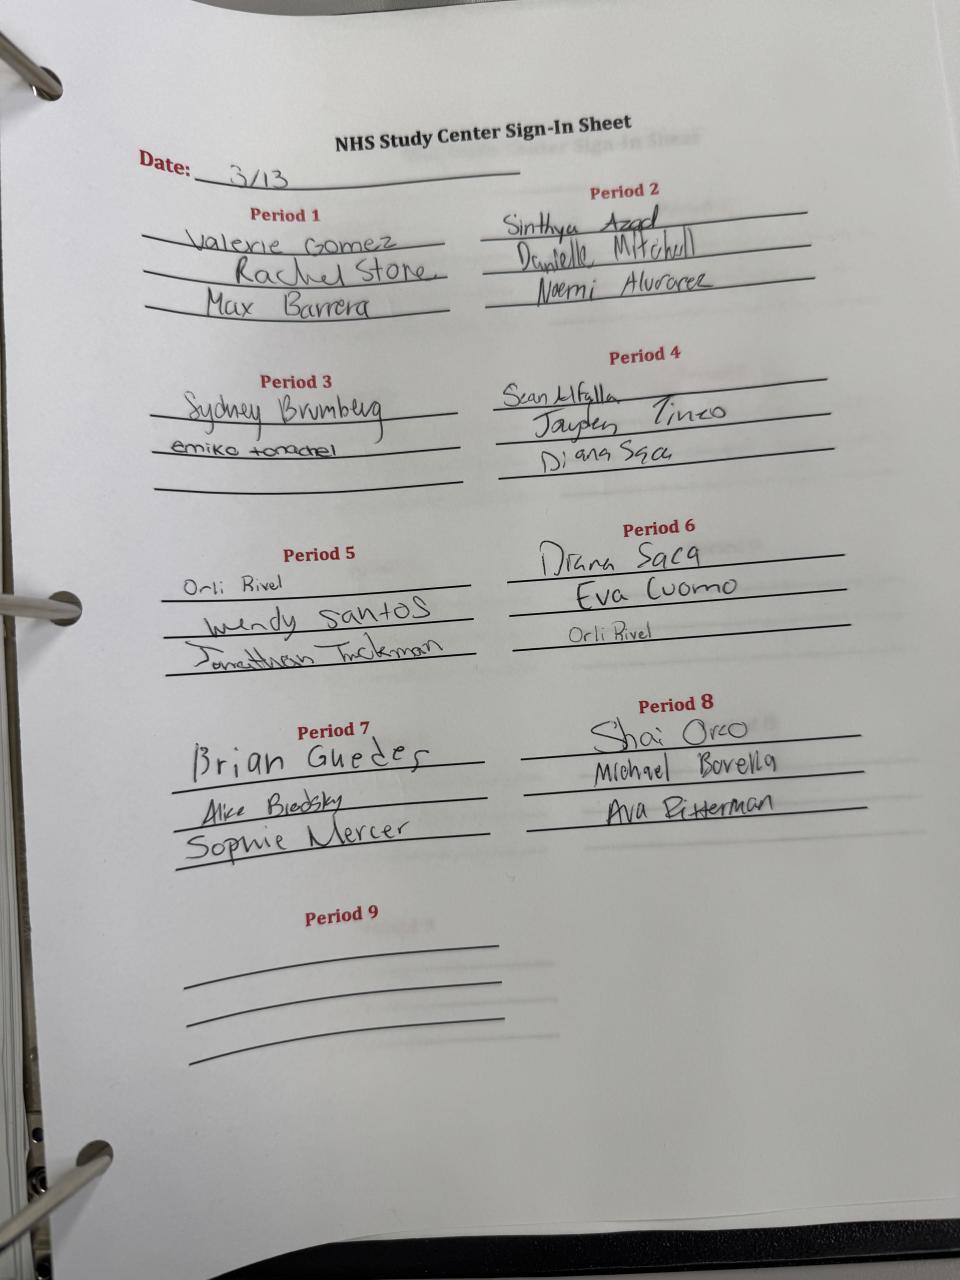 NHS Study Center Sign-In Sheet
Date: 3/13
Period 1
Valerie Gomez
Rachel Stone
Max Barrera
Period 2
Sinthya Azad
Danielle Mitchell
Noemi Alvarez
Period 3
Sydney Brumberg
emiko tonachel
Period 4
Sean
Jayden Tineo
Diana Saca
Period 5
Orli Rivel
Wendy Santos
Jonathan Tuckman
Period 6
Diana Saca
Eva Cuomo
Orli Rivel
Period 7
Brian Guedes
Alice Brodsky
Sophie Mercer
Period 8
Shai Orco
Michael Bovella
Ava Ritterman
Period 9